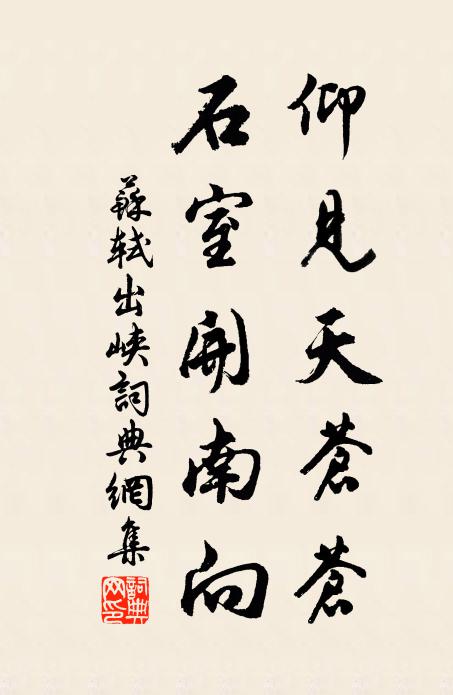 仰見天蒼蒼
石室開南向
蘇軾出峽詞典網集
詞典網印